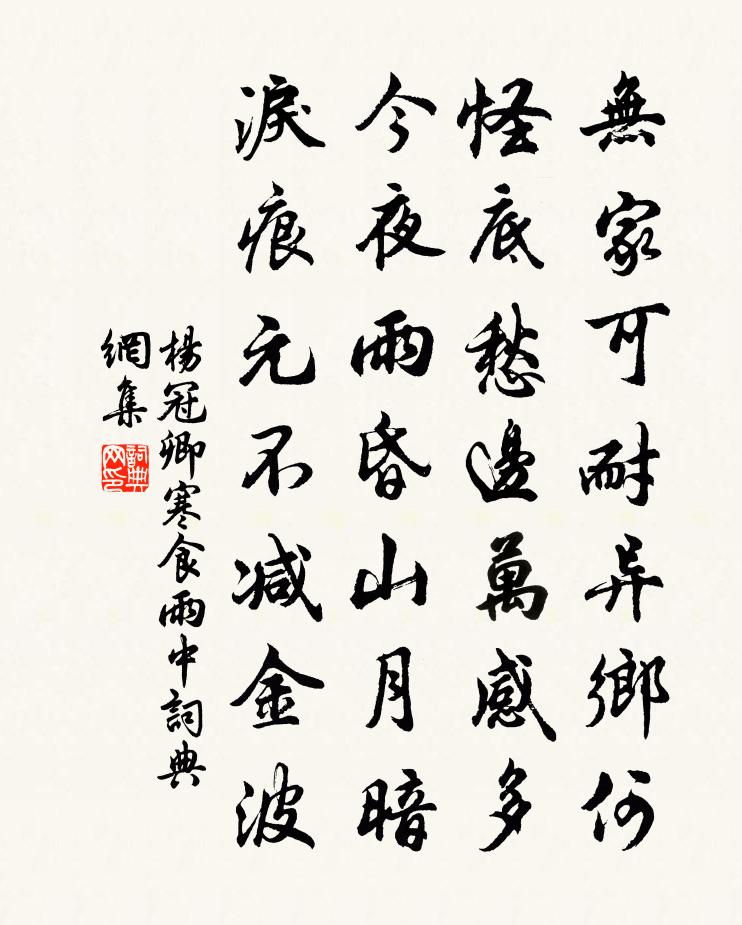 無家可耐异鄉何
怪底愁邊萬感多
今夜雨昏山月暗
淚痕元不减金波
楊冠卿寒食雨中詞典
網集
詞典
网印